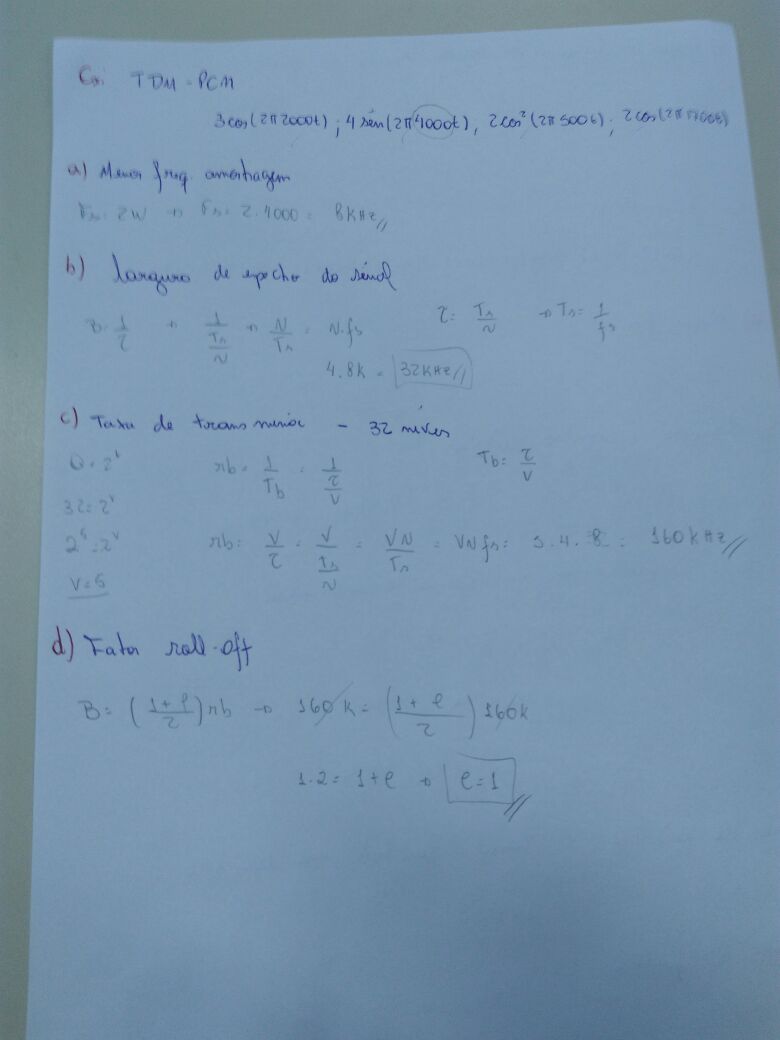 Ex: TDM-PCM
3cos(2π2000t) ; 4 sén(2π4000t), 2cos²(2π500t) ; 2cos(2π
a) Menor freq. amostragem
fs = 2W → fs = 2.4000 = 8KHz//
b) largura de espectro do sinal
B = 1/τ → 1/(Ts/N) → N/Ts = N.fs τ = Ts/N → Ts = 1/fs
4.8K = 32KHz//
c) Taxa de transmissão - 32 níveis
Q = 2^v rb = 1/Tb = 1/(τ/v) Tb = τ/v
32 = 2^v
2^5 = 2^v rb = V/τ = V/(Ts/N) = VN/Ts = VNfs = 5.4.8 = 160KHz//
V = 5
d) Fator roll-off
B = ((1+ρ)/2) rb → 160K = ((1+ρ)/2) 160K
1.2 = 1+ρ → ρ = 1//